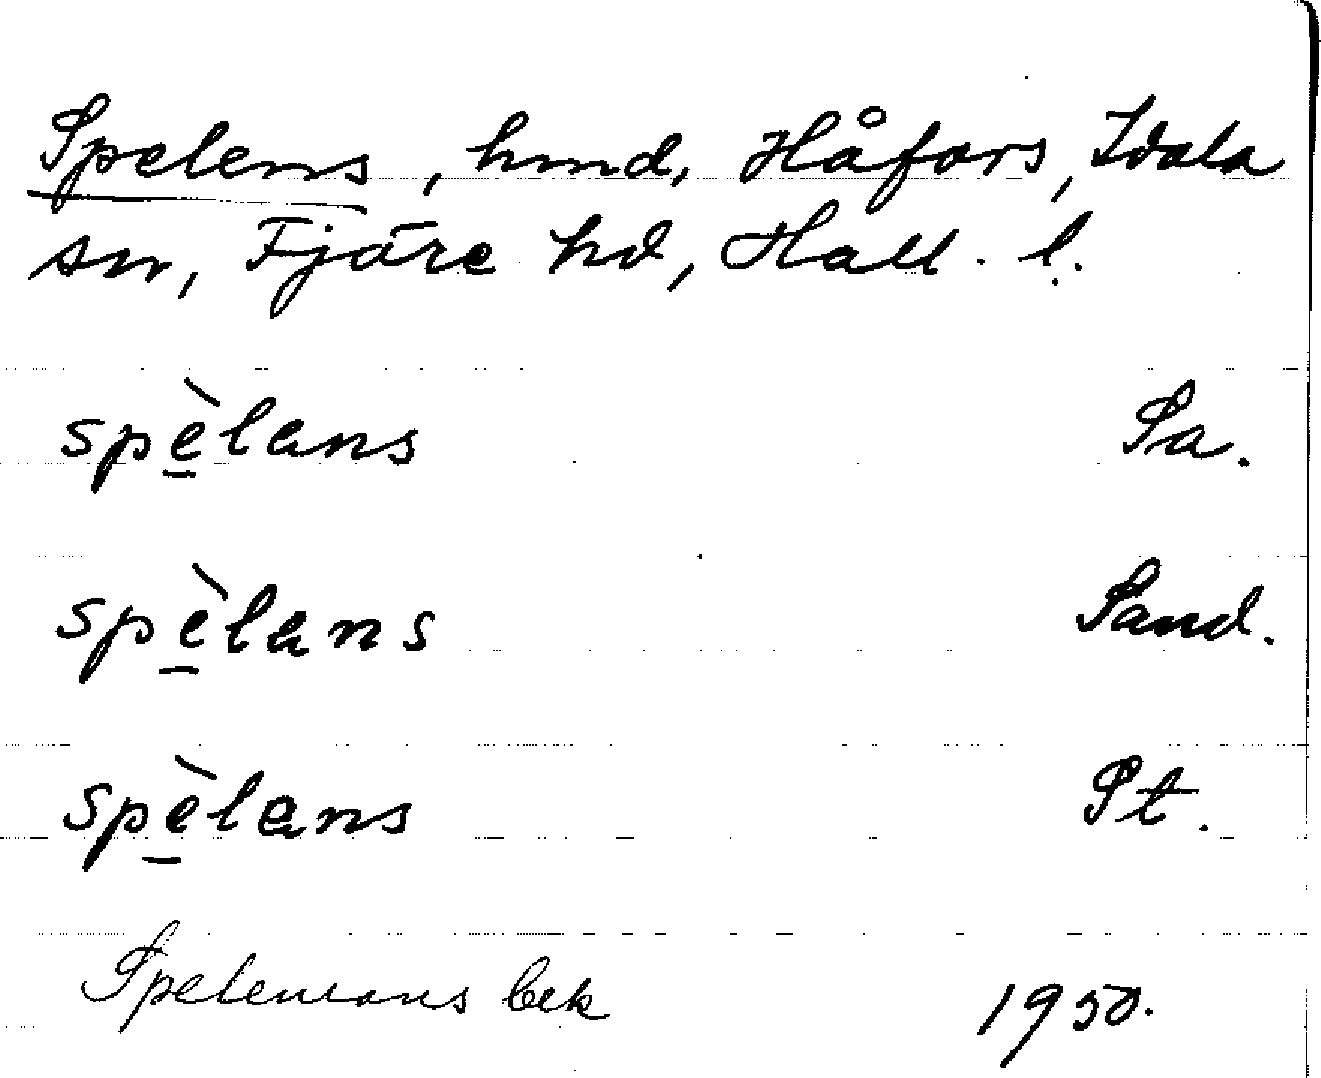 Spelens, hmd, Håfors, Idala
sn, Fjäre hd, Hall. l.
spèlans Sa.
spèlans Sand.
spèlans St.
Spelemans bek 1950.